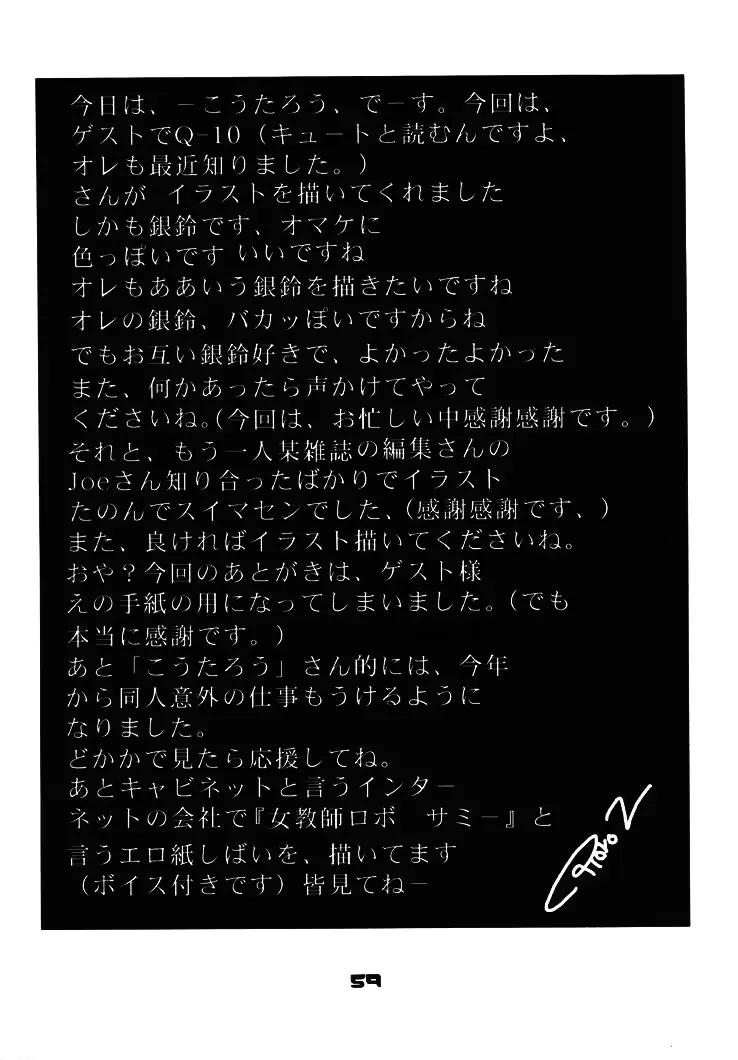 今日は、－こうたろう、で－す。今回は、
ゲストでQ-10（キュートと読むんですよ、
オレも最近知りました。）
さんが イラストを描いてくれました
しかも銀鈴です、オマケに
色っぽいです いいですね
オレもああいう銀鈴を描きたいですね
オレの銀鈴、バカッぽいですからね
でもお互い銀鈴好きで、よかったよかった
また、何かあったら声かけてやって
くださいね。（今回は、お忙しい中感謝感謝です。）
それと、もう一人某雑誌の編集さんの
Joeさん知り合ったばかりでイラスト
たのんでスイマセンでした、（感謝感謝です、）
また、良ければイラスト描いてくださいね。
おや？今回のあとがきは、ゲスト様
えの手紙の用になってしまいました。（でも
本当に感謝です。）
あと「こうたろう」さん的には、今年
から同人意外の仕事もうけるように
なりました。
どかかで見たら応援してね。
あとキャビネットと言うインター
ネットの会社で『女教師ロボ　サミー』と
言うエロ紙しばいを、描いてます
（ボイス付きです）皆見てねー
59